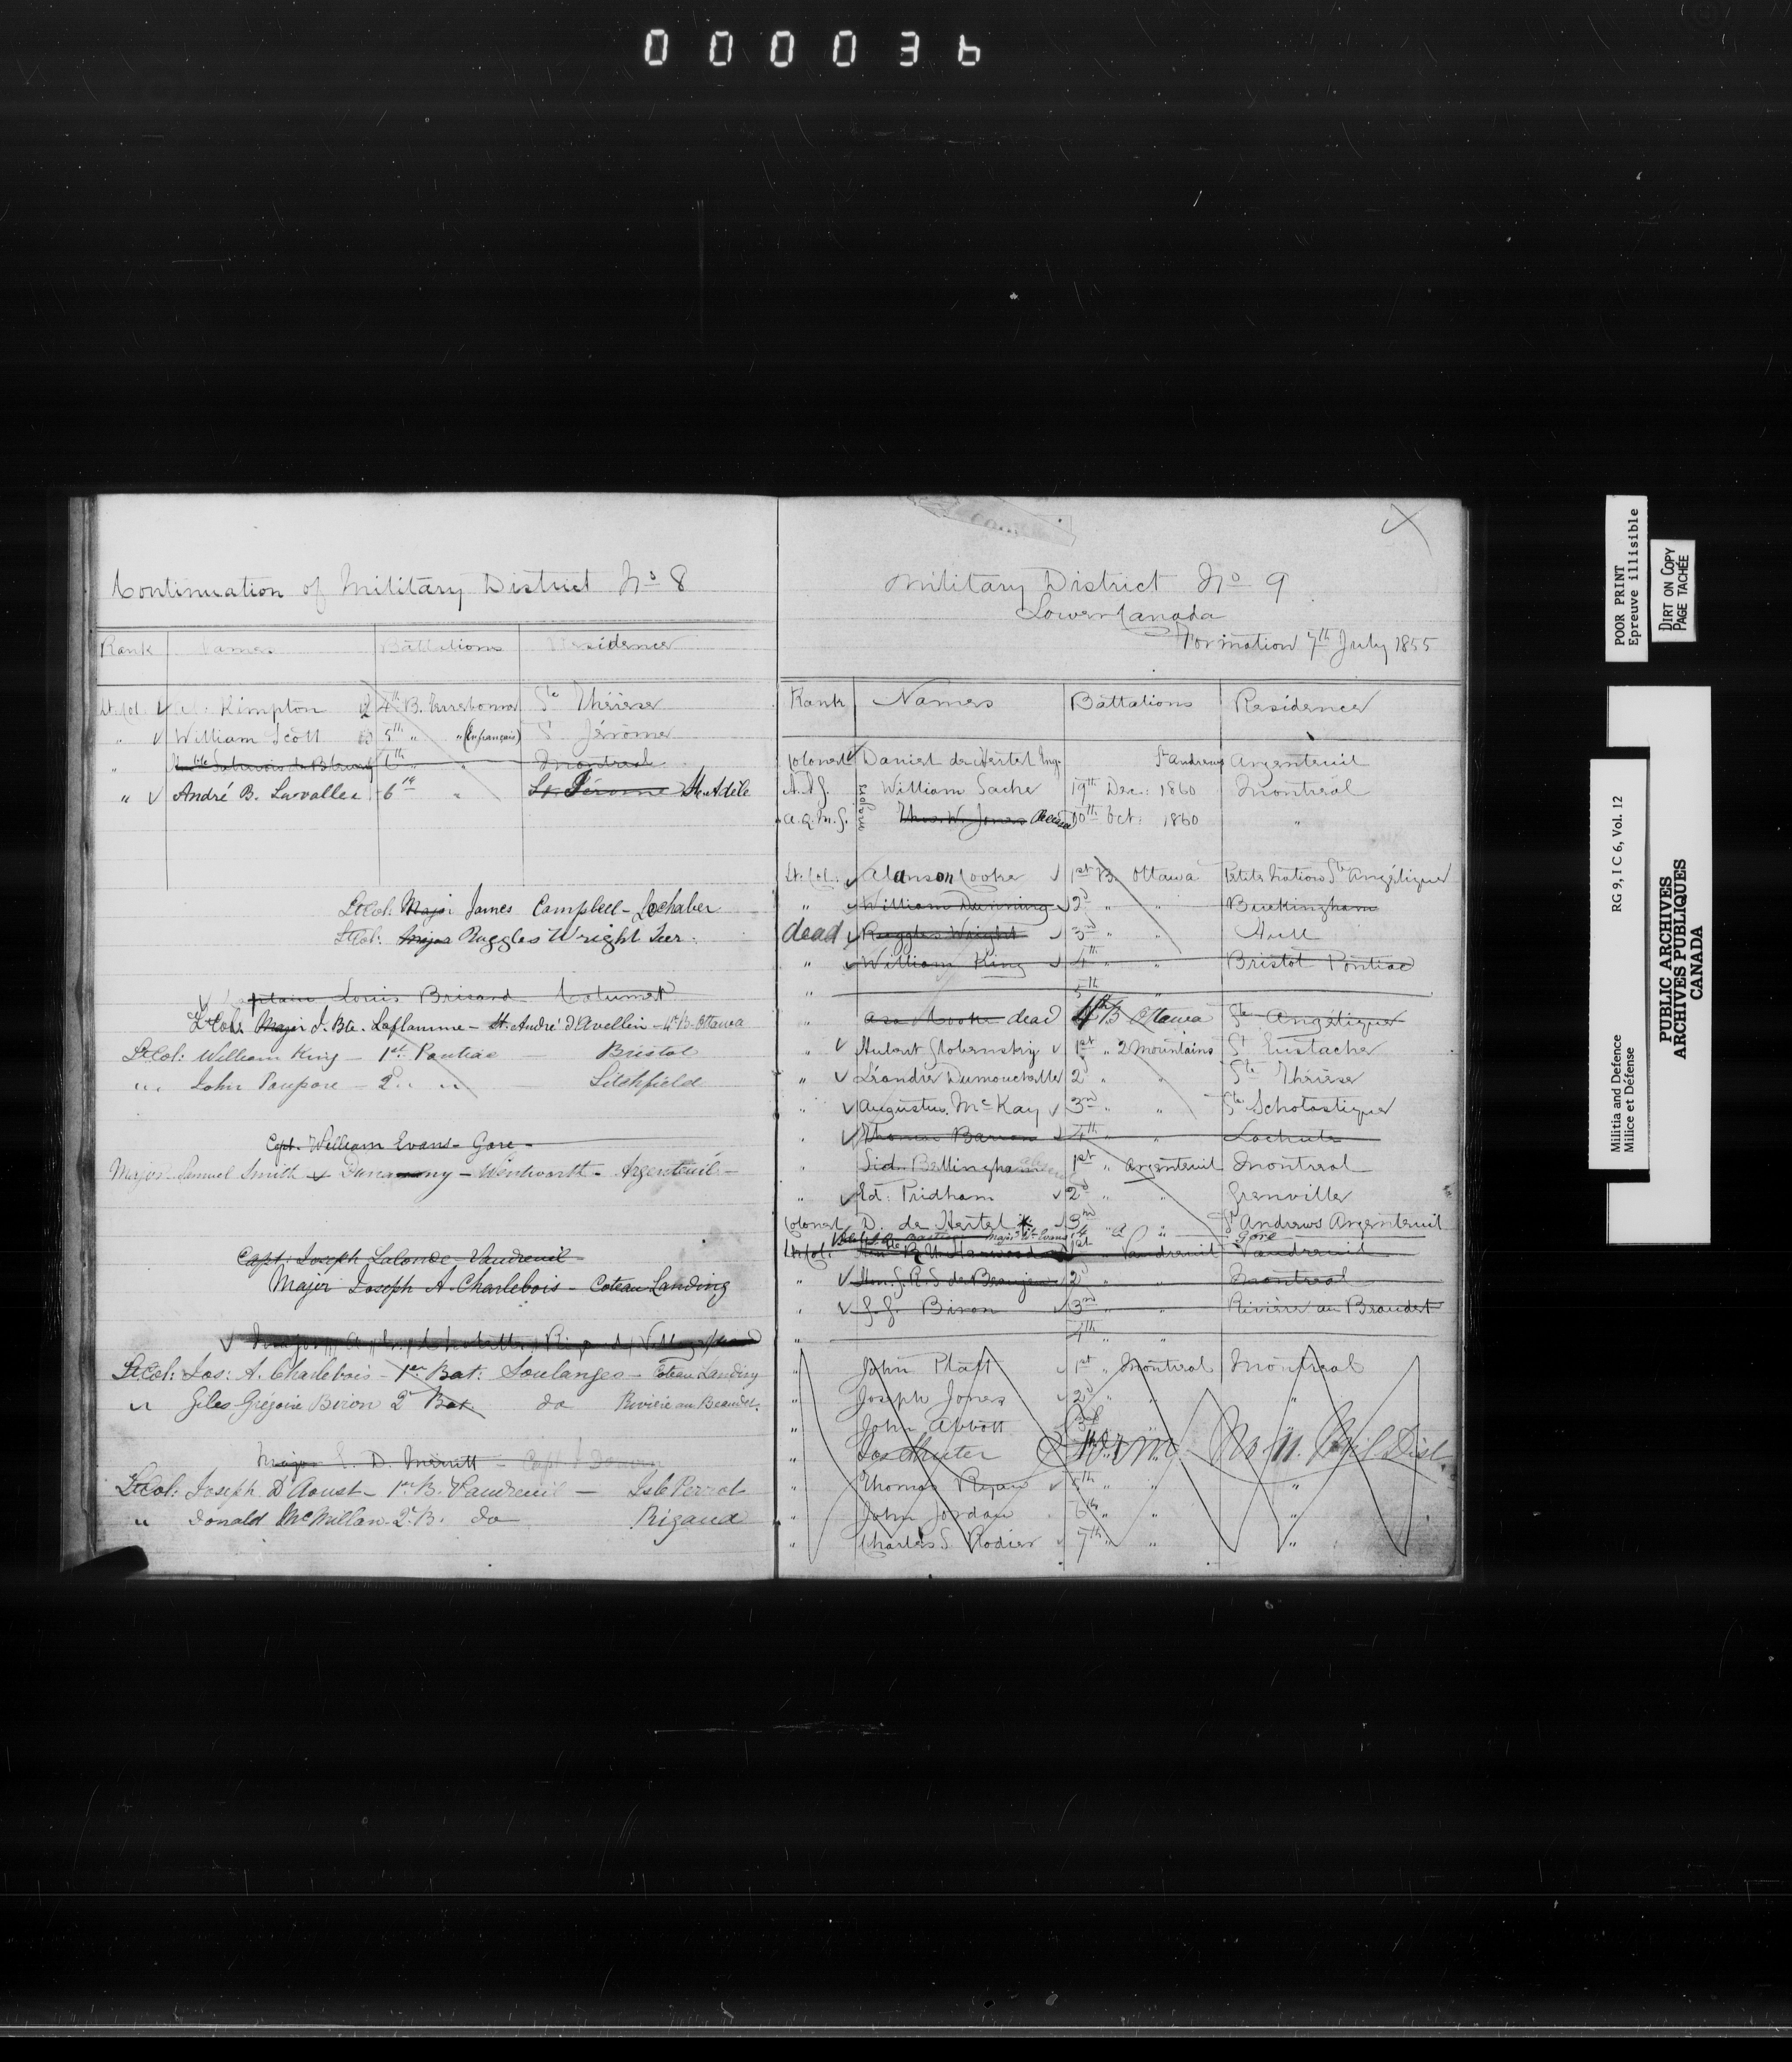 000036
Continuation of Military District No 8
Rank Names Battalions Residence
Lt. Col. Kimpton 4th B. Terrebonne Ste Thérèse
" William Scott 5th " " (français) St Jérôme
" 6th " Montreal
" André B. Lavallée 6th " St. Jérome Ste Adèle
Lt Col: Major James Campbell - Lochaber
Lt Col: Major Ruggles Wright Ju
Captain Louis Brisand Calumet
Lt Col: Major J. Bte. Laflamme - St. André d'Avellin - 4e B. Ottawa
Lt Col: William King - 1st Pontiac Bristol
" " John Poupore - 2d " " Litchfield
Capt. William Evans - Gore -
Major Samuel Smith - Wentworth - Argenteuil -
Capt. Joseph Lalonde, Vaudreuil
Major Joseph A. Charlebois - Coteau Landing
Lt Col: Jos: A. Charlebois - 1er Bat: Soulanges - Coteau Landing
" Giles Grégoire Biron 2d Bat. do Rivière au Beaudet.
Major D. Merritt - Capt.
Lt Col: Joseph D'Aoust - 1er B. Vaudreuil - Isle Perrot
" Donald McMillan - 2d B. do Rigaud
Military District No 9
Lower Canada
Formation 7th July 1855
Rank Names Battalions Residence
Colonel Daniel de Hertel St Andrews Argenteuil
A.A.G. Major William Sache 19th Dec: 1860 Montréal
A.Q.M.G. Thos. W. Jones 10th Oct: 1860 "
Lt. Col: Alanson Cooke 1st B. Ottawa Petite Nation Ste Angélique
" William Dunning 2d " " Buckingham
dead Ruggles Wright 3rd " " Hull
" William King 4th " " Bristol Pontiac
" 5th "
" Asa Cooke dead 4th B Ottawa Ste Angélique
" Hubert Globensky 1st " 2 Mountains St Eustache
" Léandre Dumouchelle 2d " " Ste Thérèse
" Augustus McKay 3rd " " Ste Scholastique
" Thomas Barron 4th " " Lachute
" Sid. Bellingham 1st " Argenteuil Montreal
" Ed: Pridham 2d " " Grenville
Colonel D. de Hertel 3rd St Andrews Argenteuil
Major Wm Evans 4 " " Gore
Lt. Col: Harwood 1st Vaudreuil Vaudreuil
" Hon. G. R. S. de Beaujeu 2d " " Montreal
" G. G. Biron 3rd " " Rivière au Beaudet
" 4th " "
" John Platt 1st " Montreal Montreal
" Joseph Jones 2d " " "
" John Abbott 3rd
" Jos Shuter No 11. Mil Dist.
" Thomas Ryan 5th " " "
" John Jordan 6th " " "
" Charles S. Rodier 7th " " "
POOR PRINT
Epreuve illisible
DIRT ON COPY
PAGE TACHÉE
Militia and Defence
Milice et Défense
RG 9, I C 6, Vol. 12
PUBLIC ARCHIVES
ARCHIVES PUBLIQUES
CANADA